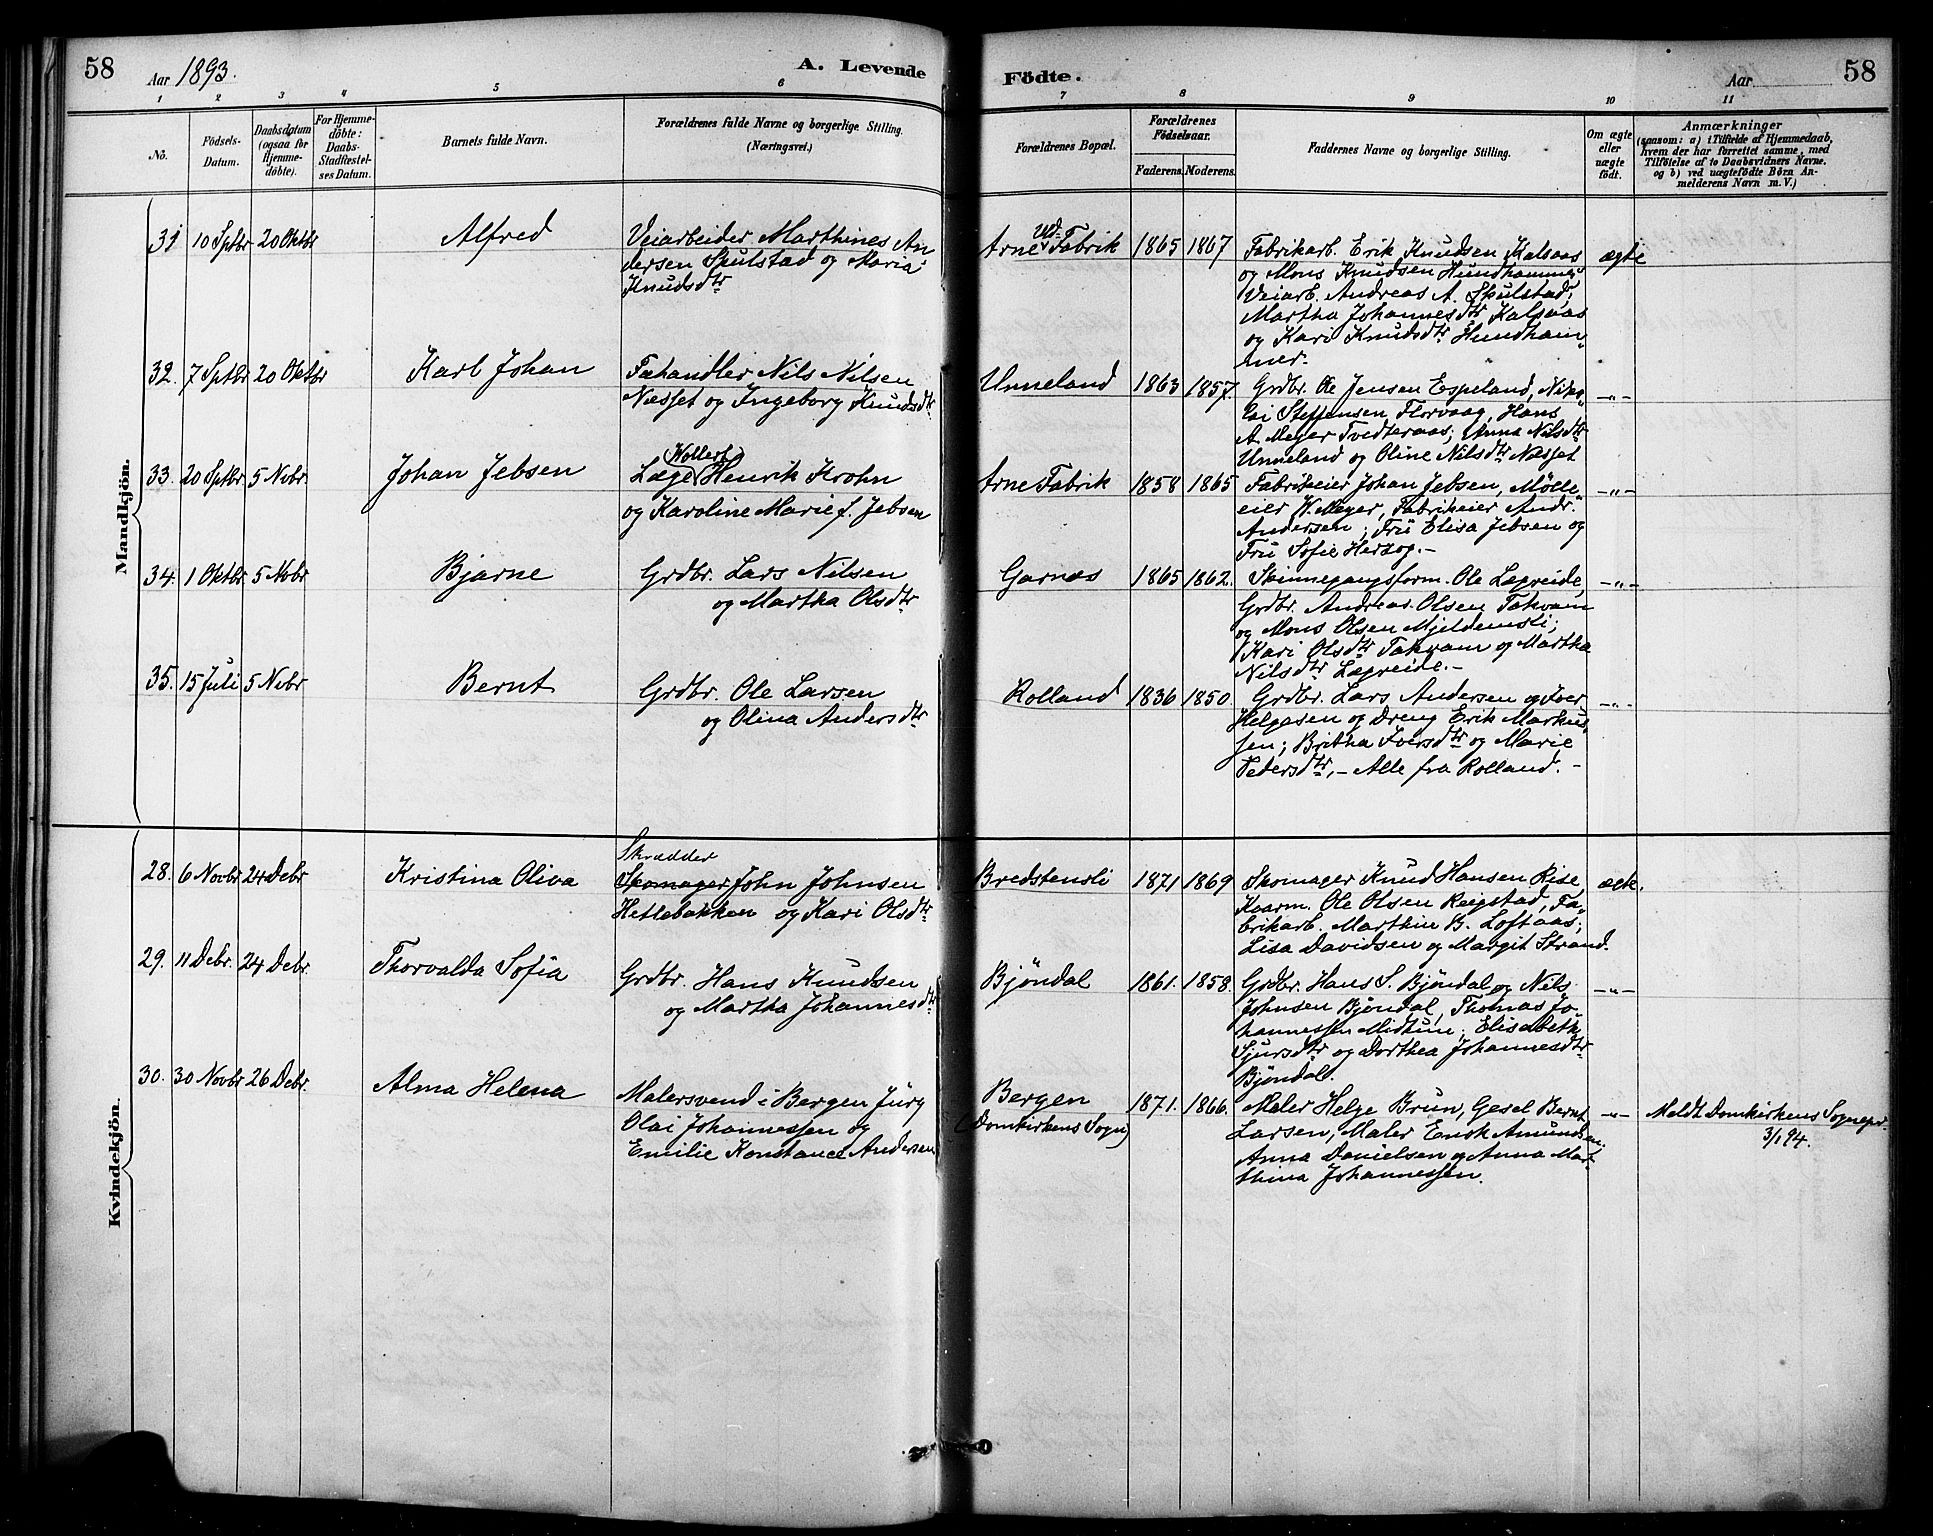 58
Aar 1893.
A. Levende
Födte.
Aar
58
1 2 3 4 5 6 7 8 9 10 11
No.
Födsels-
Datum.
Daabsdatum
(ogsaa for
Hjemme-
döbte).
For Hjemme-
döbte:
Daabs-
Stadfæstel-
ses Datum.
Barnets fulde Navn.
Forældrenes fulde Navne og borgerlige Stilling.
(Næringsvei.)
Forældrenes Bopæl.
Forældrenes
Födselsaar.
Faderens. Moderens.
Faddernes Navne og borgerlige Stilling.
Om ægte
eller
uægte
födt.
Anmærkninger
(saasom: a) i Tilfælde af Hjemmedaab,
hvem der har forrettet samme, med
Tilföielse af to Daabsvidners Navne.
og b) ved uægtefödte Börn An-
melderens Navn m. V.)
Mandkjön.
31 10 Sptbr 20 Oktbr
Alfred
Veiarbeider Marthines An
dersen Skulstad og Maria
Knudsdtr
Arne ved Fabrik
1865 1867
Fabrikarb. Erik Knudsen Kalsaas
og Mons Knudsen Hundhammer
Veiarb. Andreas A. Skulstad,
Martha Johannesdtr Kalsaas
og Kari Knudsdtr Hundham„
mer.
ægte
32. 7 Sptbr 20 Oktbr
Karl Johan
Fæhandler Nils Nilsen
Næsset og Ingeborg Knudsdtr
Unneland
1863 1857.
Grdbr. Ole Jensen Espeland, Niko„
lai Steffensen Florvaag, Hans
A. Meyer Tvedteraas; Anna Nilsdtr
Unneland og Oline Nilsdtr Næsset
-„-
33. 20 Sptbr 5 Novbr
Johan Jebsen
Læge Wollert Henrik Krohn
og Karoline Marie f. Jebsen
Arne Fabrik
1858 1865
Fabrikeier Johan Jebsen, Mölle„
eier W. Meyer, Fabrikeier Andr.
Andersen; Fru Elisa Jebsen og
Fru Sofie Herzog.-
-„-
34. 1 Oktbr 5 Novbr
Bjarne
Grdbr. Lars Nilsen
og Martha Olsdtr
Garnæs
1865 1862.
Skinnegangsform. Ole Lægreide,
Grdbr. Andreas Olsen Takvam
og Mons Olsen Mjeldemsli;
Kari Olsdtr Takvam og Martha
Nilsdtr Lægreide.-
-„-
35. 15 Juli 5 Novbr
Bernt
Grdbr. Ole Larsen
og Olina Andersdtr
Rolland
1836 1850.
Grdbr. Lars Andersen og Iver
Helgesen og Dreng Erik Markus„
sen; Britha Iversdtr og Marie
Pedersdtr,- Alle fra Rolland.-
-„-
Kvindekjön.
28. 6 Novbr 24 Debr
Kristina Oliva
Skrædder
Skomager John Johnsen
Hetlebakken og Kari Olsdtr
Bredstensli
1871 1869
Skomager Knud Hansen Rise,
Kaarm. Ole Olsen Reigstad, Fa„
brikarb. Marthin B. Loftaas;
Lisa Davidsen og Margit Strand.
ægte.
29. 11 Debr. 24 Debr.
Thorvalda Sofia
Grdbr. Hans Knudsen
og Martha Johannesdtr
Bjöndal
1861. 1858.
Grdbr. Hans S. Bjöndal og Nils
Johnsen Bjöndal, Thomas Jo„
hannessen Midtun; Elisabeth
Sjursdtr og Dorthea Johannesdtr
Bjöndal.
-„-
30. 30 Novbr 26 Debr.
Alma Helena
Malersvend i Bergen Jürg
Olai Johannessen og
Emilie Konstance Andersen
Bergen
(Domkirkens Sogn)
1871. 1866.
Maler Helge Brun, Gesel Bernt
Larsen, Maler Enok Amundsen.
Anna Danielsen og Anna Mar„
thina Johannessen.
-„-
Meldt Domkirkens Sognepr.
3/1 94.